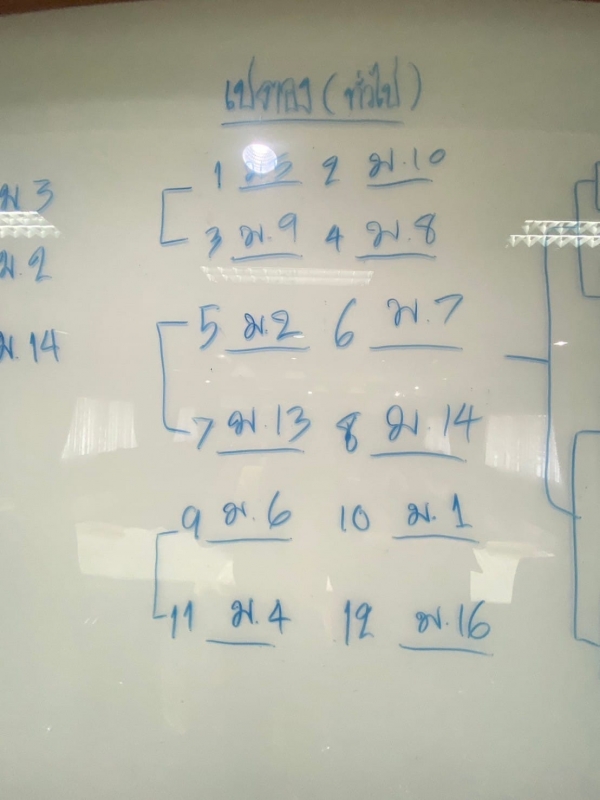 เปตอง (ทั่วไป)
1 ม.5 2 ม.10
3 ม.9 4 ม.8
5 ม.2 6 ม.7
7 ม.13 8 ม.14
9 ม.6 10 ม.1
11 ม.4 12 ม.16
ม.3
ม.2
ม.14